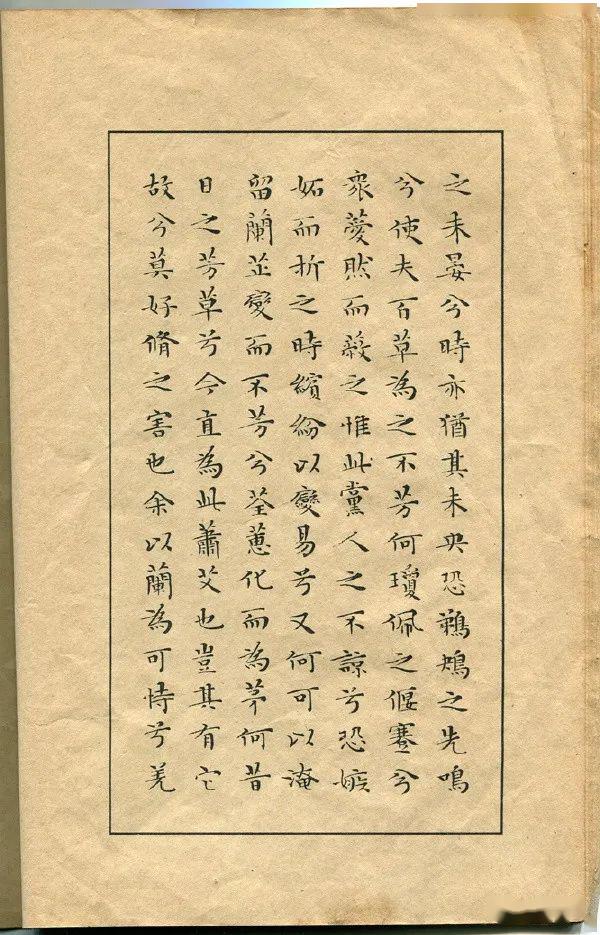 之未晏兮時亦猶其未央恐鵜鴂之先鳴
兮使夫百草為之不芳何瓊佩之偃蹇兮
衆薆然而蔽之惟此黨人之不諒兮恐嫉
妬而折之時繽紛以變易兮又何可以淹
留蘭芷變而不芳兮荃蕙化而為茅何昔
日之芳草兮今直為此蕭艾也豈其有它
故兮莫好脩之害也余以蘭為可恃兮羌